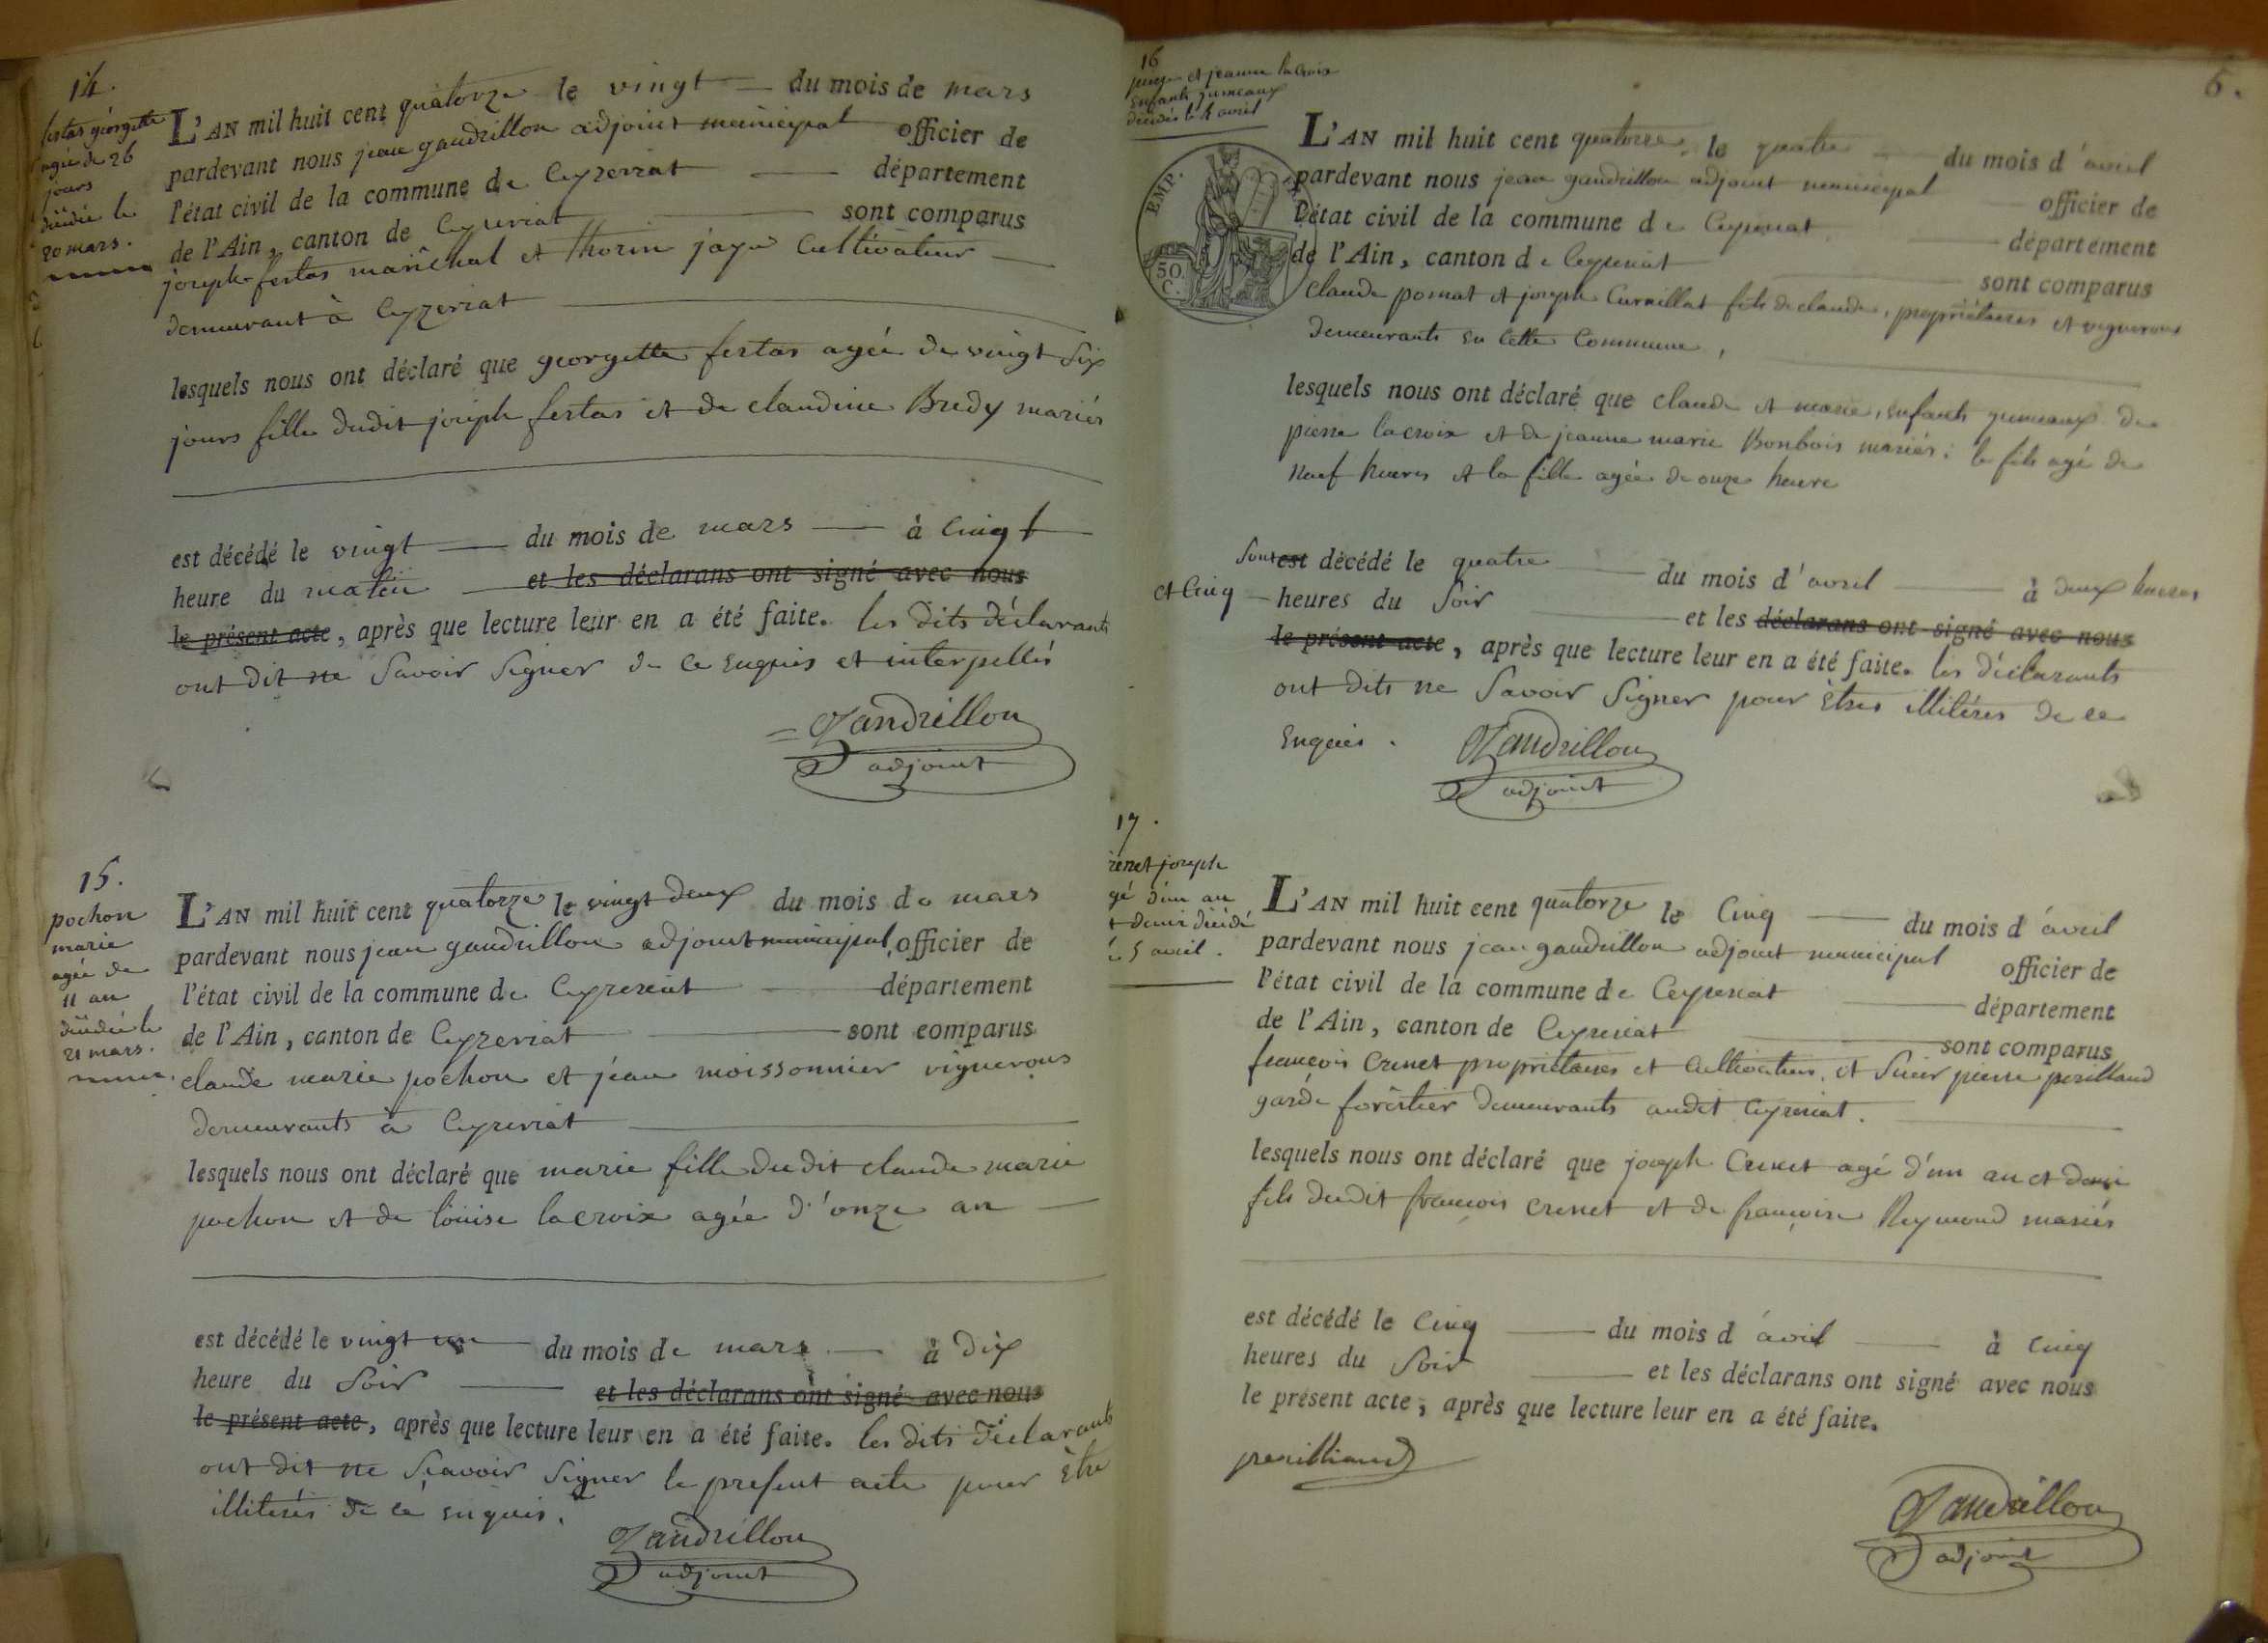 14.
fertas géorgette
agée de 26
jours
décédée le
20 mars.
L'AN mil huit cent quatorze le vingt du mois de mars
pardevant nous jean gaudrillon adjoint municipal officier de
l'état civil de la commune de Ceyzeriat département
de l'Ain, canton de Ceyzeriat sont comparus
joseph fertas maréchal et Thorin jayr Cultivateur
demeurant à Ceyzeriat
lesquels nous ont déclaré que georgette fertas agée de vingt six
jours fille dudit joseph fertas et de claudine Bredy mariés
est décédé le vingt du mois de mars à Cinq
heure du matin et les déclarans ont signé avec nous
le présent acte, après que lecture leur en a été faite. les dits déclarants
ont dit ne Savoir Signer de ce enquis et interpellés
Gaudrillon
adjoint
15.
pochon
marie
agée de
11 an
décédée le
21 mars.
L'AN mil huit cent quatorze le vingt deux du mois de mars
pardevant nous jean gaudrillon adjoint municipal officier de
l'état civil de la commune de Ceyzeriat département
de l'Ain, canton de Ceyzeriat sont comparus
claude marie pochon et jean moissonnier vignerons
demeurants à Ceyzeriat
lesquels nous ont déclaré que marie fille dudit claude marie
pochon et de louise lacroix agée d'onze an
est décédé le vingt un du mois de mars à dix
heure du Soir et les déclarans ont signé avec nous
le présent acte, après que lecture leur en a été faite. les dits déclarants
ont dit ne Sçavoir Signer le present acte pour être
illiterés de ce enquis.
Gaudrillon
adjoint
5.
16
et jeanne lacroix
Enfants jumeaux
décédés le 4 avril
EMP.
50
C.
L'AN mil huit cent quatorze le quatre du mois d'avril
pardevant nous jean gaudrillon adjoint municipal officier de
l'état civil de la commune de Ceyzeriat département
de l'Ain, canton de Ceyzeriat sont comparus
claude pornat et joseph Curnillat fils de claude, propriétaires et vignerons
demeurants en cette Commune,
lesquels nous ont déclaré que claude et marie, enfants jumeaux de
pierre lacroix et de jeanne marie Bonbois mariés; le fils agé de
neuf heures et la fille agée de onze heure
Sont est décédé le quatre du mois d'avril à deux heures
et Cinq heures du Soir et les déclarans ont signé avec nous
le présent acte, après que lecture leur en a été faite. les déclarants
ont dits ne Savoir Signer pour êtres illitérés de ce
Enquis.
Gaudrillon
adjoint
17.
renet joseph
gé d'un an
t demi décédé
5 avril.
L'AN mil huit cent quatorze le Cinq du mois d'avril
pardevant nous jean gaudrillon adjoint municipal officier de
l'état civil de la commune de Ceyzeriat département
de l'Ain, canton de Ceyzeriat sont comparus
francois Crenet propriétaires et Cultivateurs, et Sieur pierre perilliand
garde forêstier demeurants audit Ceyzeriat.
lesquels nous ont déclaré que joseph Crenet agé d'un an et demi
fils dudit francois Crenet et de francoise Reymond mariés
est décédé le Cinq du mois d'avril à Cinq
heures du Soir et les déclarans ont signé avec nous
le présent acte, après que lecture leur en a été faite.
perilliand
Gaudrillon
adjoint